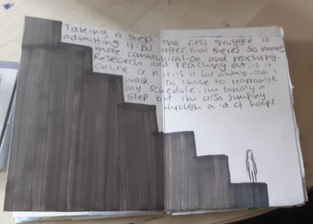 Taking a step, The first struggle is
admitting it. But after that there's so much
more communication and reaching.
Research and reaching out. is it
Online or not. is it far away. can I
walk. Do I have to rearrange
my schedule. im taking a
step but im also jumping
through a lot of hoops